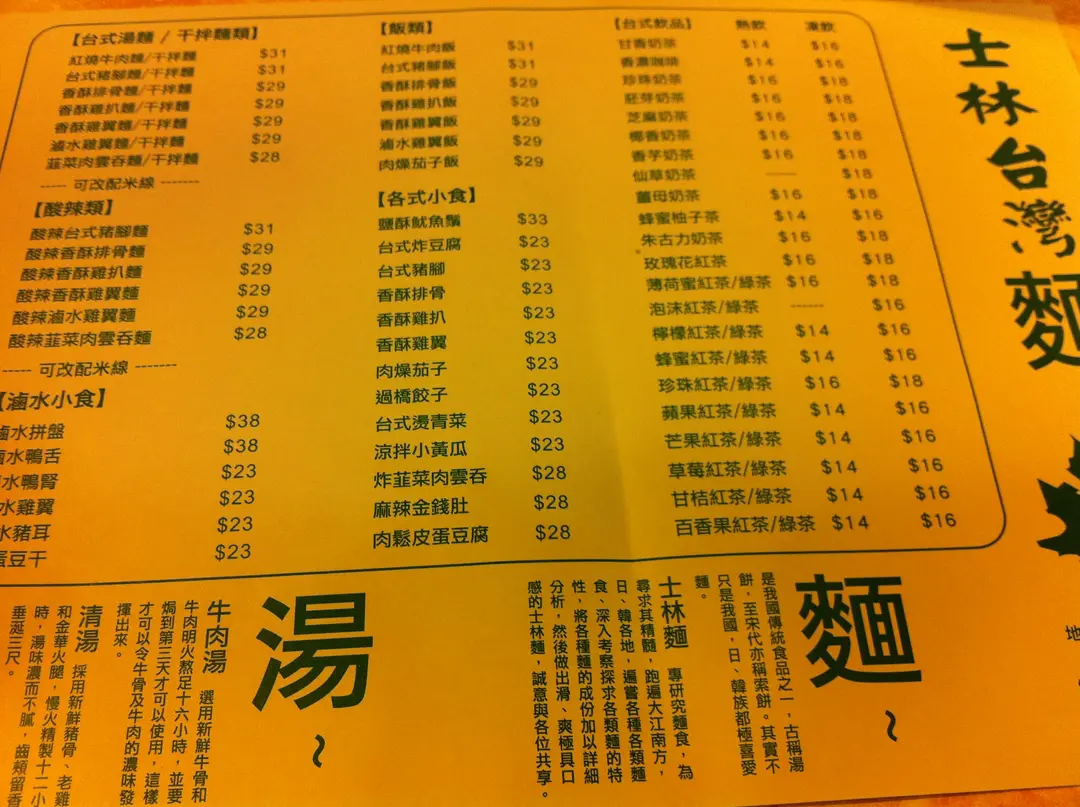 【台式湯麵 / 干拌麵類】
紅燒牛肉麵/干拌麵 $31
台式豬腳麵/干拌麵 $31
香酥排骨麵/干拌麵 $29
香酥雞扒麵/干拌麵 $29
香酥雞翼麵/干拌麵 $29
滷水雞翼麵/干拌麵 $29
韮菜肉雲吞麵/干拌麵 $28
----- 可改配米線 -------
【酸辣類】
酸辣台式豬腳麵 $31
酸辣香酥排骨麵 $29
酸辣香酥雞扒麵 $29
酸辣香酥雞翼麵 $29
酸辣滷水雞翼麵 $29
酸辣韮菜肉雲吞麵 $28
----- 可改配米線 -------
【滷水小食】
滷水拼盤 $38
滷水鴨舌 $38
水鴨腎 $23
水雞翼 $23
水豬耳 $23
蛋豆干 $23
【飯類】
紅燒牛肉飯 $31
台式豬腳飯 $31
香酥排骨飯 $29
香酥雞扒飯 $29
香酥雞翼飯 $29
滷水雞翼飯 $29
肉燥茄子飯 $29
【各式小食】
鹽酥魷魚鬚 $33
台式炸豆腐 $23
台式豬腳 $23
香酥排骨 $23
香酥雞扒 $23
香酥雞翼 $23
肉燥茄子 $23
過橋餃子 $23
台式燙青菜 $23
涼拌小黃瓜 $23
炸韮菜肉雲吞 $28
麻辣金錢肚 $28
肉鬆皮蛋豆腐 $28
【台式飲品】 熱飲 凍飲
甘香奶茶 $14 $16
香濃咖啡 $14 $16
珍珠奶茶 $16 $18
胚芽奶茶 $16 $18
芝麻奶茶 $16 $18
椰香奶茶 $16 $18
香芋奶茶 $16 $18
仙草奶茶 —— $18
薑母奶茶 $16 $18
蜂蜜柚子茶 $14 $16
朱古力奶茶 $16 $18
玫瑰花紅茶 $16 $18
薄荷蜜紅茶/綠茶 $16 $18
泡沫紅茶/綠茶 ------ $16
檸檬紅茶/綠茶 $14 $16
蜂蜜紅茶/綠茶 $14 $16
珍珠紅茶/綠茶 $16 $18
蘋果紅茶/綠茶 $14 $16
芒果紅茶/綠茶 $14 $16
草莓紅茶/綠茶 $14 $16
甘桔紅茶/綠茶 $14 $16
百香果紅茶/綠茶 $14 $16
士林台灣麵
麵~
是我國傳統食品之一，古稱湯
餅，至宋代亦稱索餅。其實不
只是我國，日、韓族都極喜愛
麵。
士林麵 專研究麵食，為
尋求其精髓，跑遍大江南方，
日、韓各地，遍嘗各種各類麵
食、深入考察探求各類麵的特
性，將各種麵的成份加以詳細
分析，然後做出滑、爽極具口
感的士林麵，誠意與各位共享。
湯~
牛肉湯 選用新鮮牛骨和
牛肉明火熬足十六小時，並要
焗到第三天才可以使用，這樣
才可以令牛骨及牛肉的濃味發
揮出來。
清湯 採用新鮮豬骨、老雞
和金華火腿，慢火精製十二小
時，湯味濃而不膩，齒頰留香
垂涎三尺。